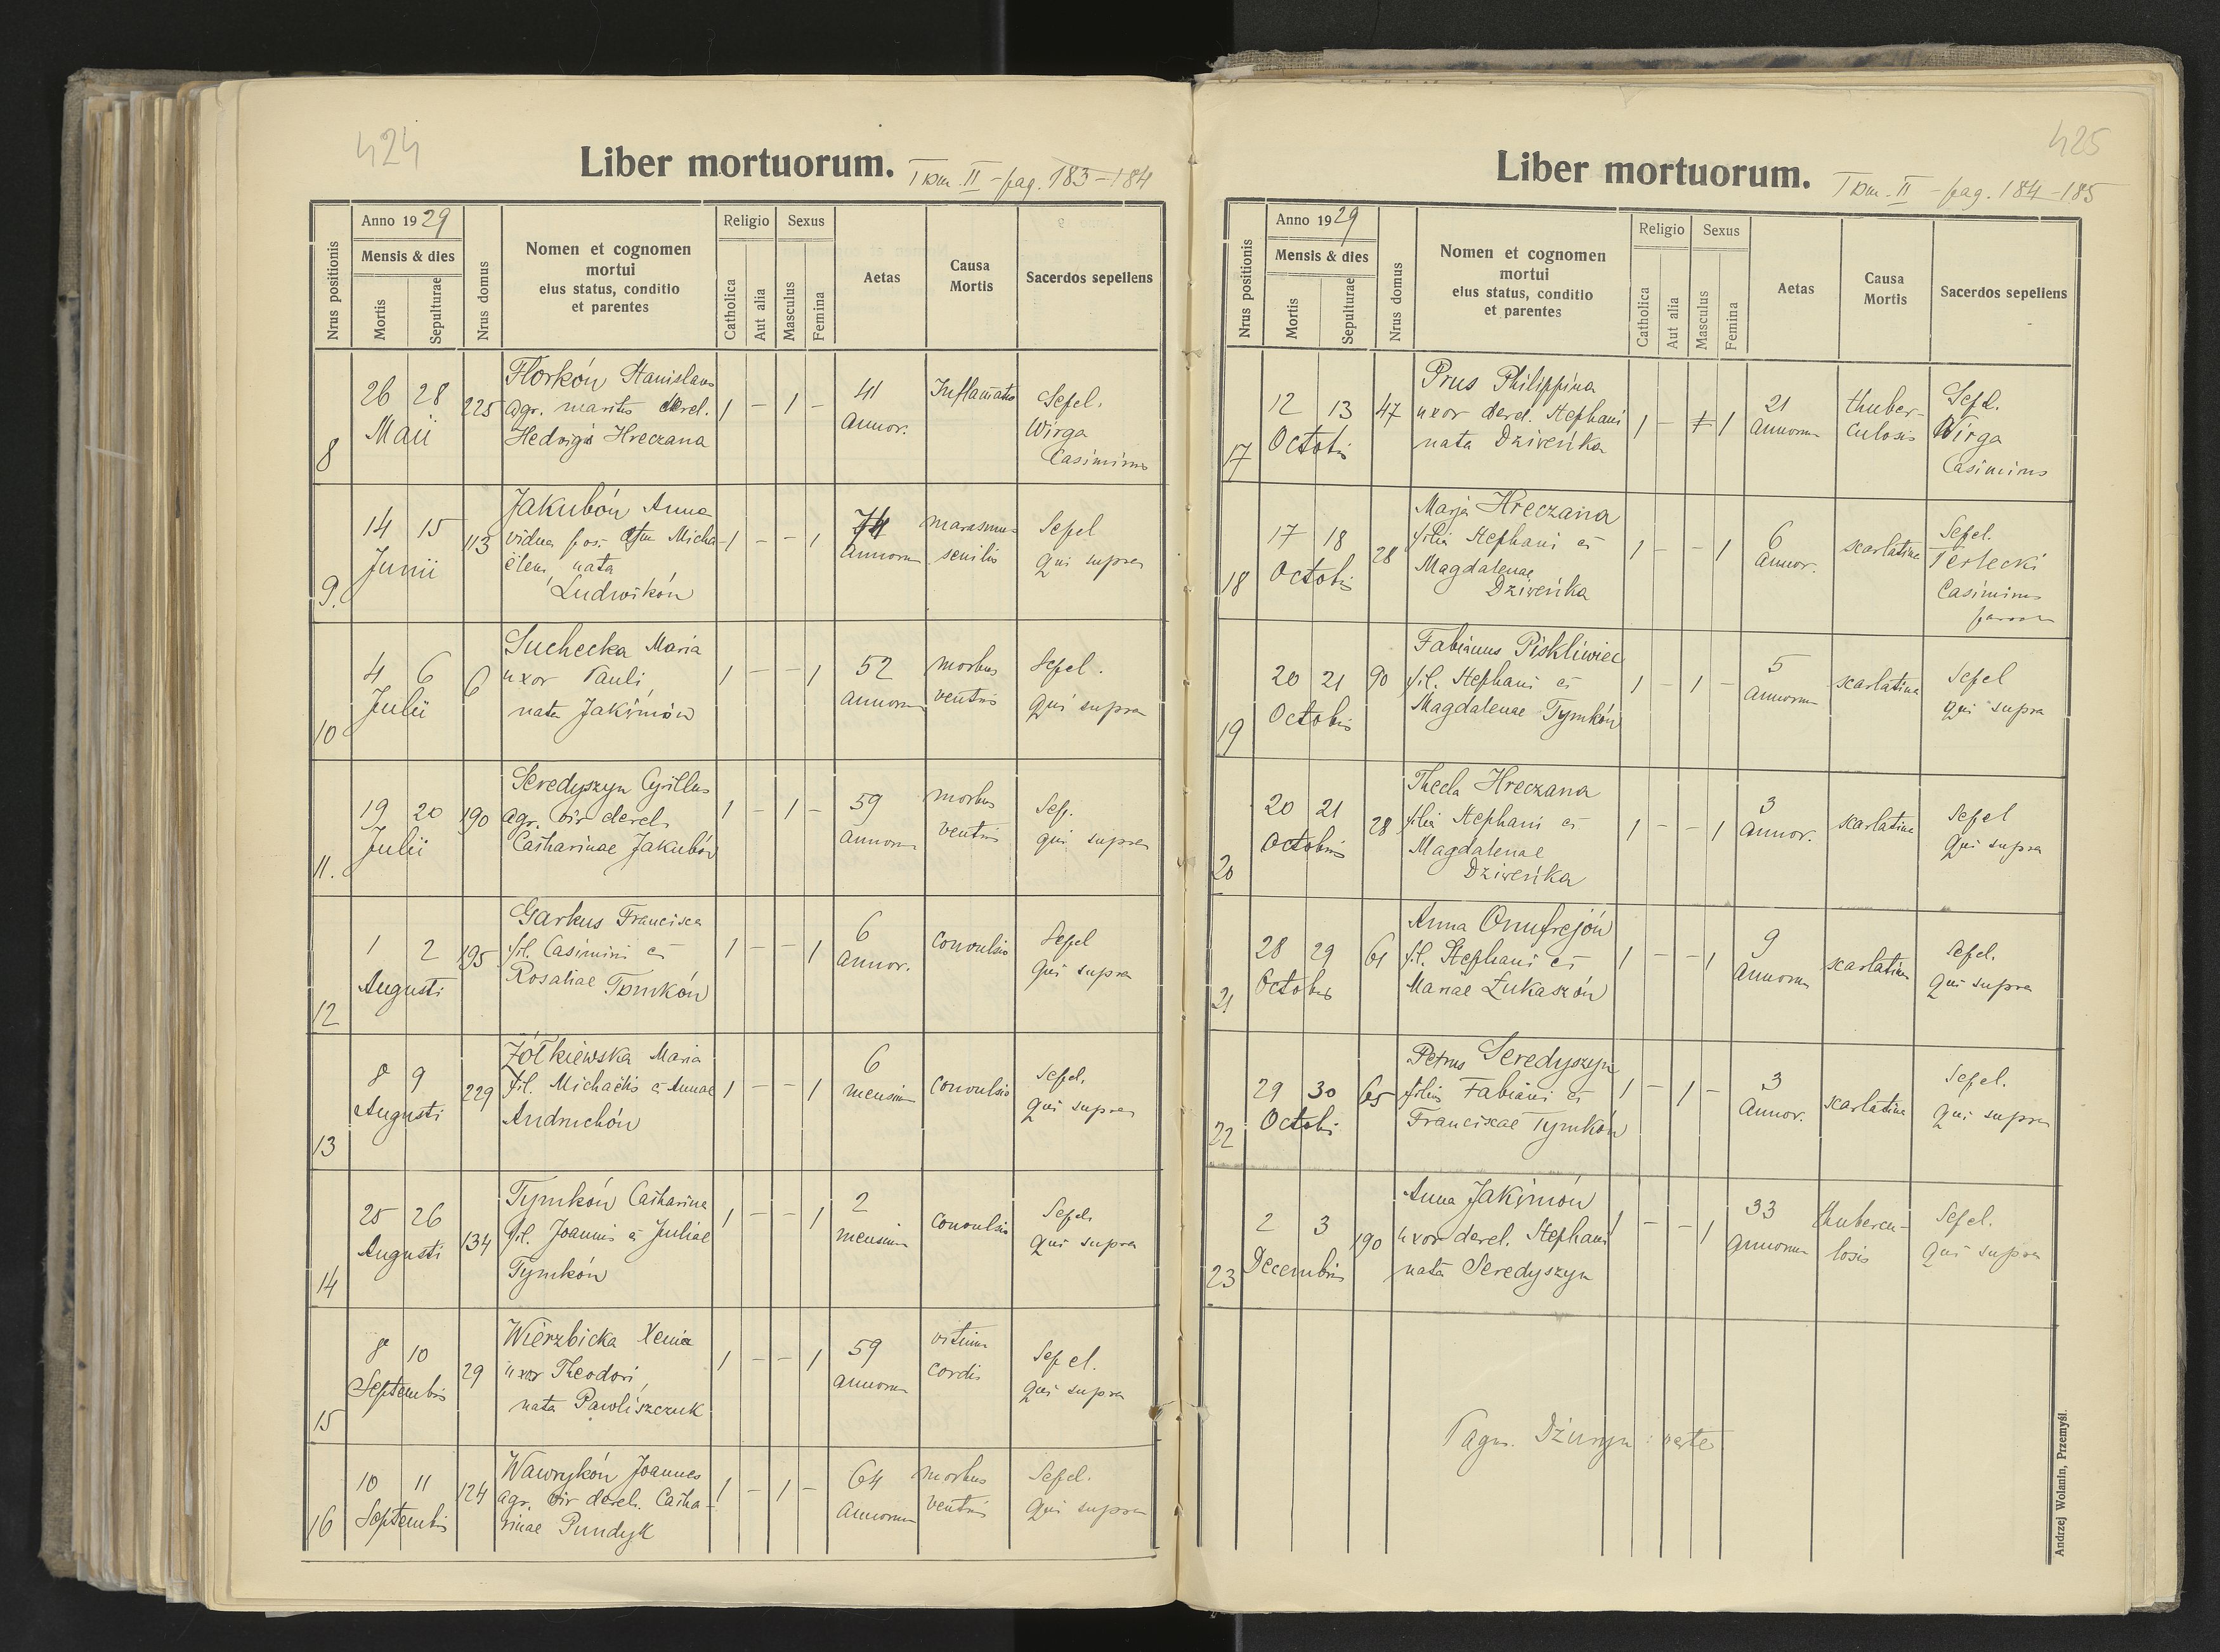 424
Liber mortuorum. Tom. II - pag. 183-184
Nrus positionis
Anno 1929
Mensis & dies
Mortis
Sepulturae
Nrus domus
Nomen et cognomen
mortui
eius status, conditio
et parentes
Religio
Catholica
Aut alia
Sexus
Masculus
Femina
Aetas
Causa
Mortis
Sacerdos sepeliens
8
26 28
Maii
225
Florkón Stanislaus
agr. maritus derel.
Hedvigis Hreczana
1 - 1 -
41
Annor.
Inflamatio
Sepel.
Wirga
Casimirus
9.
14 15
Junii
113
Jakubón Anna
vidua pos. Micha-
ëlem nata
Ludwikón
1 - - 1
74
Annorum
marasmus
senilis
Sepel
qui supra
10
4 6
Julii
6
Suchecka Maria
uxor Pauli,
nata Jakimów
1 - - 1
52
annorum
morbus
ventris
Sepel.
qui supra
11.
19 20
Julii
190
Seredyszyn Cyrillus
agr. vir derel.
Catharinae Jakubów
1 - 1 -
59
annorum
morbus
ventris
Sep.
qui supra
12
1 2
Augusti
195
Garkus Francisca
fil. Casimiri et
Rosaliae Tomków
1 - - 1
6
annor.
Convulsio
Sepel
qui supra
13
8 9
Augusti
229
Żółkiewska Maria
fil. Michaelis et Annae
Andruchón
1 - - 1
6
mensium
Convulsio
Sepel.
qui supra
14
25 26
Augusti
134
Tymkón Catharina
fil. Joannis et Juliae
Tymkón
1 - - 1
2
mensium
Convulsio
Sepel.
qui supra
15
8 10
Septembris
29
Wierzbicka Xenia
uxor Theodori,
nata Pawliszczuk
1 - - 1
59
annorum
vitium
cordis
Sepel.
qui supra
16
10 11
Septembris
124
Wawrykón Joannes
agr. vir derel. Catha-
rinae Pundyk
1 - 1 -
64
annorum
morbus
ventris
Sepel.
qui supra
425
Liber mortuorum. Tom. II - pag. 184-185
Nrus positionis
Anno 1929
Mensis & dies
Mortis
Sepulturae
Nrus domus
Nomen et cognomen
mortui
eius status, conditio
et parentes
Religio
Catholica
Aut alia
Sexus
Masculus
Femina
Aetas
Causa
Mortis
Sacerdos sepeliens
17
12 13
Octobris
47
Prus Philippina
uxor derel. Stephani
nata Dziveńka
1 - 1
21
Annorum
thuber-
culosis
Sepel.
Wirga
Casimirus
18
17 18
Octobris
28
Maria Hreczana
filia Stephani et
Magdalenae
Dziveńka
1 - - 1
6
annor.
scarlatina
Sepel.
Terlecki
Casimirus
19
20 21
Octobris
90
Fabianus Piskliwiec
fil. Stephani et
Magdalenae Tymkón
1 - 1 -
5
annorum
scarlatina
Sepel
qui supra
20
20 21
Octobris
28
Thecla Hreczana
filia Stephani et
Magdalenae
Dziveńka
1 - - 1
3
Annor.
scarlatina
Sepel
qui supra
21
28 29
Octobris
61
Anna Onufrejón
fil. Stephani et
Mariae Łukaszón
1 - - 1
9
annorum
scarlatina
Sepel.
qui supra
22
29 30
Octobris
65
Petrus Seredyszyn
filius Fabiani et
Franciscae Tymkón
1 - 1 -
3
Annor.
scarlatina
Sepel.
qui supra
23
2 3
Decembris
190
Anna Jakimón
uxor derel. Stephani
nata Seredyszyn
1 - - 1
33
annorum
thubercu-
losis
Sepel.
qui supra
Pagus. Dżuryn: verte
Andrzej Wolanin, Przemyśl.